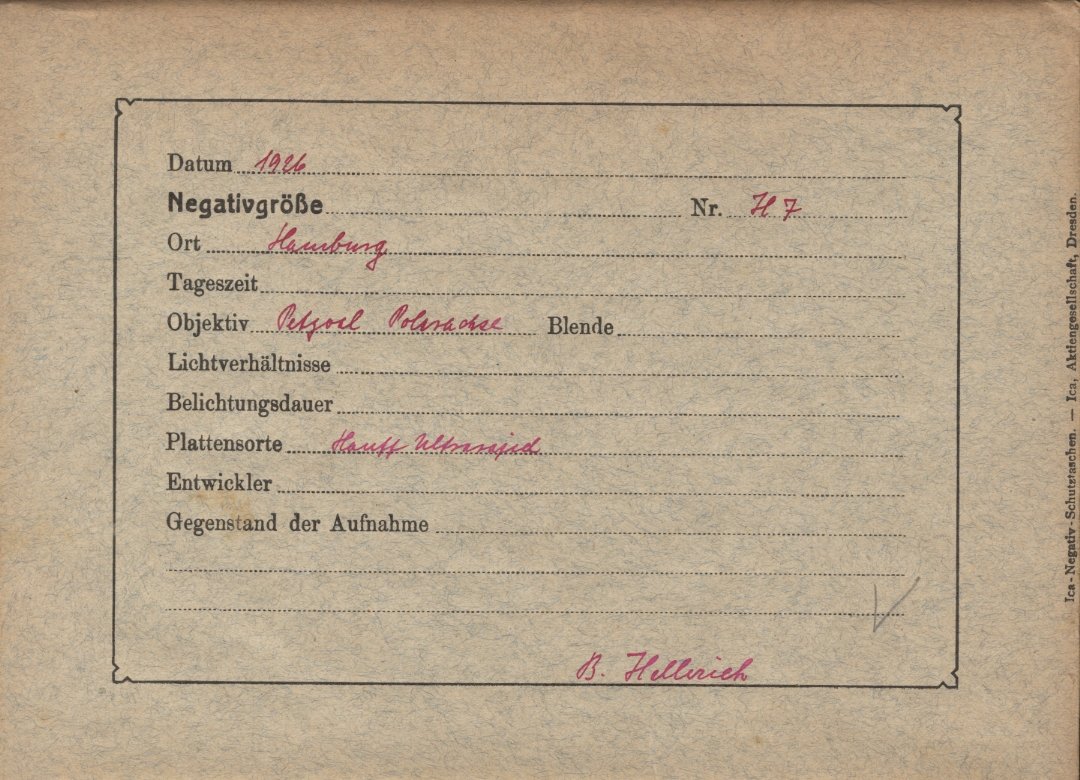 Datum 1926
Negativgröße Nr. H 7
Ort Hamburg
Tageszeit
Objektiv Petzval Polarachse Blende
Lichtverhältnisse
Belichtungsdauer
Plattensorte Hauff Ultrarapid
Entwickler
Gegenstand der Aufnahme
B. Hellerich
Ica-Negativ-Schutztaschen. — Ica, Aktiengesellschaft, Dresden.